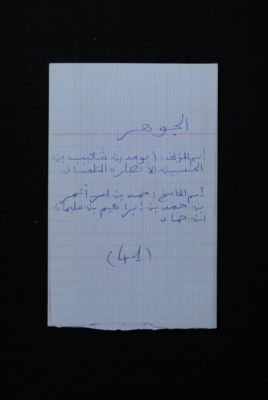 الجوهر
إسم المؤلف: أبو مدين شعيب بن
الحسين الأنصاري التلمساني
إسم الناسخ: حمد بن
بن حمد بن إبراهيم بن سليمان
ابن حماد
(41)